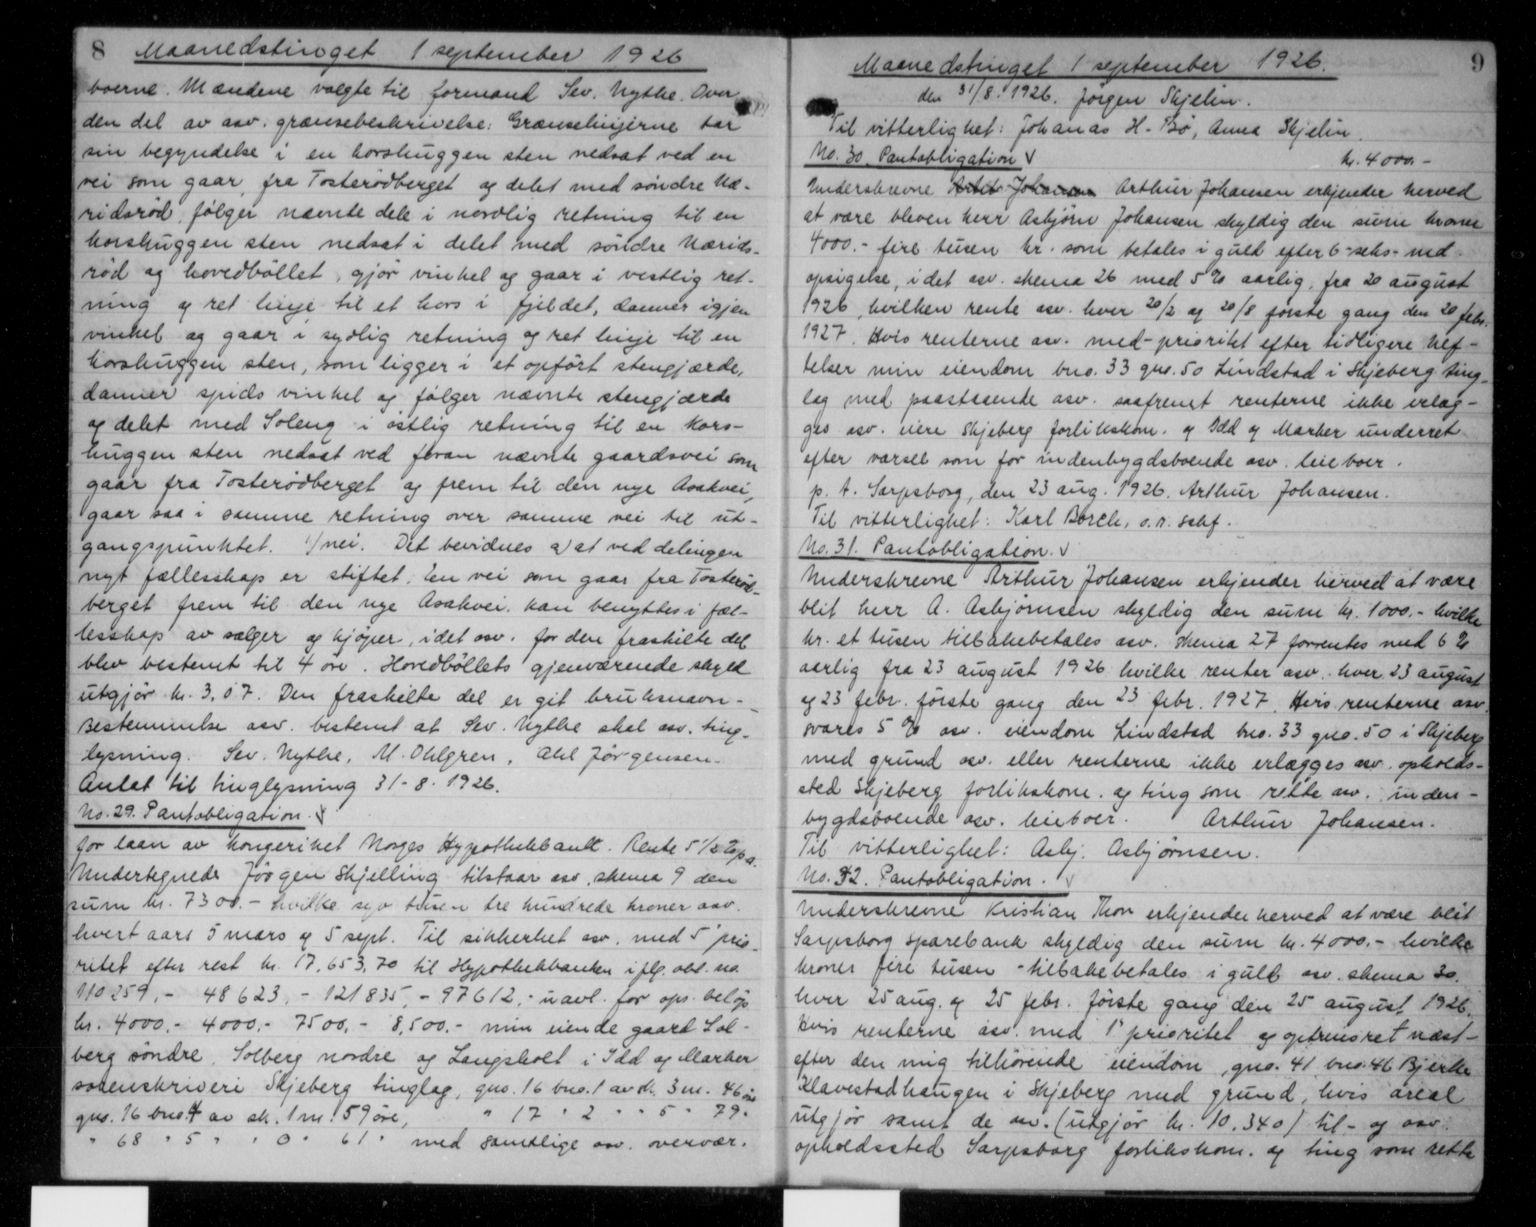 8 Maanedstinget 1 september 1926
boerne. Mændene valgte til formand Sev. Nythe. Over
den del av asv. grænsebeskrivelse: Grænselinjerne tar
sin begyndelse i en korshuggen sten nedsat ved en
vei som gaar fra Tosterødberget og delet med søndre Næ-
ridsrød, følger nævnte dele i nordlig retning til en
korshuggen sten nedsat i delet med søndre Nærids-
rød og hovedbøllet, gjør vinkel og gaar i vestlig ret-
ning og ret linje til et kors i fjeldet, danner igjen
vinkel og gaar i sydlig retning og ret linje til en
korshuggen sten, som ligger i et opført stengjærde,
danner spids vinkel og følger nævnte stengjærde
og delet med Soleng i østlig retning til en kors-
huggen sten nedsat ved foran nævnte gaardsvei som
gaar fra Tosterødberget og frem til den nye Asakvei,
gaar saa i samme retning over samme vei til ut-
gangspunktet. 1/nei. Det bevidnes a) at ved delingen
nyt fællesskap er stiftet. En vei som gaar fra Tosterød-
berget frem til den nye Asakvei. kan benyttes i fæl-
lesskap av sælger og kjøper, idet osv. for den fraskilte del
blev bestemt til 4 øre. Hovedbøllets gjenværende skyld
utgjør kr. 3.07. Den fraskilte del er git bruksnavn -
Bestemmelse asv. bestemt at Sev. Nythe skal asv. ting-
lysning. Sev. Nythe, M. Ohlgren, Ahl Jørgensen.
Antat til tinglysning 31-8. 1926.
No. 29. Pantobligation. √
for laan av kongeriket Norges Hypothekbank. Rente 5 1/2 % p.a.
Undertegnede Jörgen Skjelling tilstaar asv. skema 9 den
sum kr. 7300.- hvilke syv tusen tre hundrede kroner asv.
hvert aars 5 mars og 5 sept. Til sikkerhet asv. med 5' prio-
ritet efter rest kr. 17.653,70 til Hypothekbanken iflg. obl. no.
110259,- 48623,- 121835,- 97612,- uavl. for opr. beløp
kr. 4000.- 4000.- 7500.- 8,500.- min eiende gaard Sol-
berg søndre, Solberg nordre og Langsholt i Idd og Marker
sorenskriveri Skjeberg tinglag, gno. 16 bno. 1 av sk. 3 m. 46 øre
gno. 16 bno. 4 av sk. 1 m. 59 øre, " 17 " 2 " " 5 " 79.
" 68 " 5 " " 0 " 61 " med samtlige asv. overvær.
Maanedstinget 1 september 1926. 9
den 31/8. 1926. Jörgen Skjelin.
Til vitterlighet: Johanas H. Bö, Anna Skjelin.
No. 30. Pantobligation √ kr. 4000.-
Underskrevne Arthur Johansen erkjender herved
at være bleven herr Asbjørn Johansen skyldig den sum kroner
4000.- fire tusen kr. som betales i guld efter 6-seks- mdr.
opsigelse, idet asv. skema 26 med 5 % aarlig, fra 20 august
1926, hvilken rente asv. hver 20/2 og 20/8 første gang den 20 febr.
1927. Hvis renterne asv. med - prioritet efter tidligere hef-
telser min eiendom bno. 33 gno. 50 Lindstad i Skjeberg ting-
lag med paastaaende asv. saafremt renterne ikke erlæg-
ges asv. eiere Skjeberg forlikskom. og Idd og Marker underret
efter varsel som for indenbygdsboende asv. leieboer.
p. t. Sarpsborg, den 23 aug. 1926. Arthur Johansen.
Til vitterlighet: Karl Borch, o.r. sakf.
No. 31. Pantobligation. √
Underskrevne Arthur Johansen erkjender herved at være
blit herr A. Asbjørnsen skyldig den sum kr. 1000.- hvilke
kr. et tusen tilbakebetales asv. skema 27 forrentes med 6 %
aarlig fra 23 august 1926 hvilke renter asv. hver 23 august
og 23 febr. første gang den 23 febr. 1927. Hvis renterne asv.
svares 5 % asv. eiendom Lindstad bno. 33 gno. 50 i Skjeberg
med grund asv. eller renterne ikke erlægges asv. opholds-
sted Skjeberg forlikskom. og ting som rette asv. inden-
bygdsboende asv. leieboer. Arthur Johansen.
Til vitterlighet: Asbj. Asbjørnsen.
No. 32. Pantobligation. √
Underskrevne Kristian Thon erkjender herved at være blit
Sarpsborg sparebank skyldig den sum kr. 4000.- hvilke
kroner fire tusen - tilbakebetales i guld asv. skema 30.
hver 25 aug. og 25 febr. første gang den 25 august 1926.
Hvis renterne asv. med 1' prioritet og optrinsret næst-
efter den mig tilhørende eiendom, gno. 41 bno. 46 Bjerke
Klavestadhaugen i Skjeberg med grund, hvis areal
utgjør samt de asv. (utgjør kr. 10.340) til - og asv.
opholdssted Sarpsborg forlikskom. og ting som rette